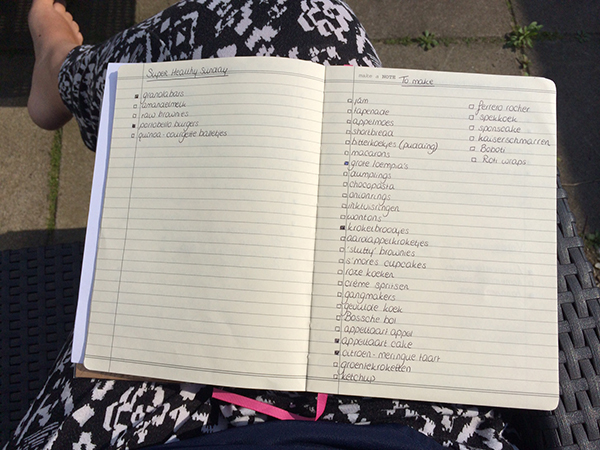 Super Healthy Sunday
granola bars
amandelmelk
raw brownies
portobello burgers
quinoa-courgette balletjes
make a NOTE
To make
jam
tapenade
appelmoes
shortbread
bitterkoekjes (pudding)
macarons
grote loempia's
dumplings
chocopasta
onionrings
inktvisringen
wontons
kroketbroodjes
aardappelkroketjes
'slutty' brownies
s'mores cupcakes
roze koeken
crème spritsen
gangmakers
gevulde koek
Bossche bol
appeltaart appel
appeltaart cake
citroen-meringue taart
groentekroketten
ketchup
ferrero rocher
spekkoek
sponscake
kaiserschmarren
Boboti
Roti wraps